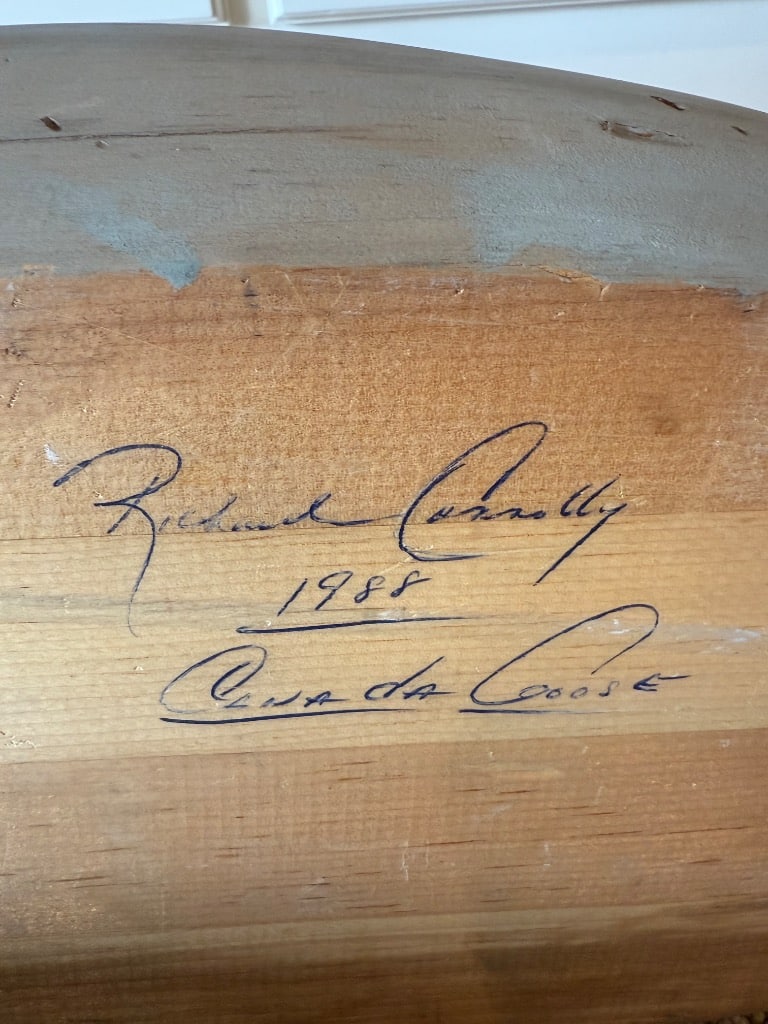 Richard Connolly
1988
Canada Goose